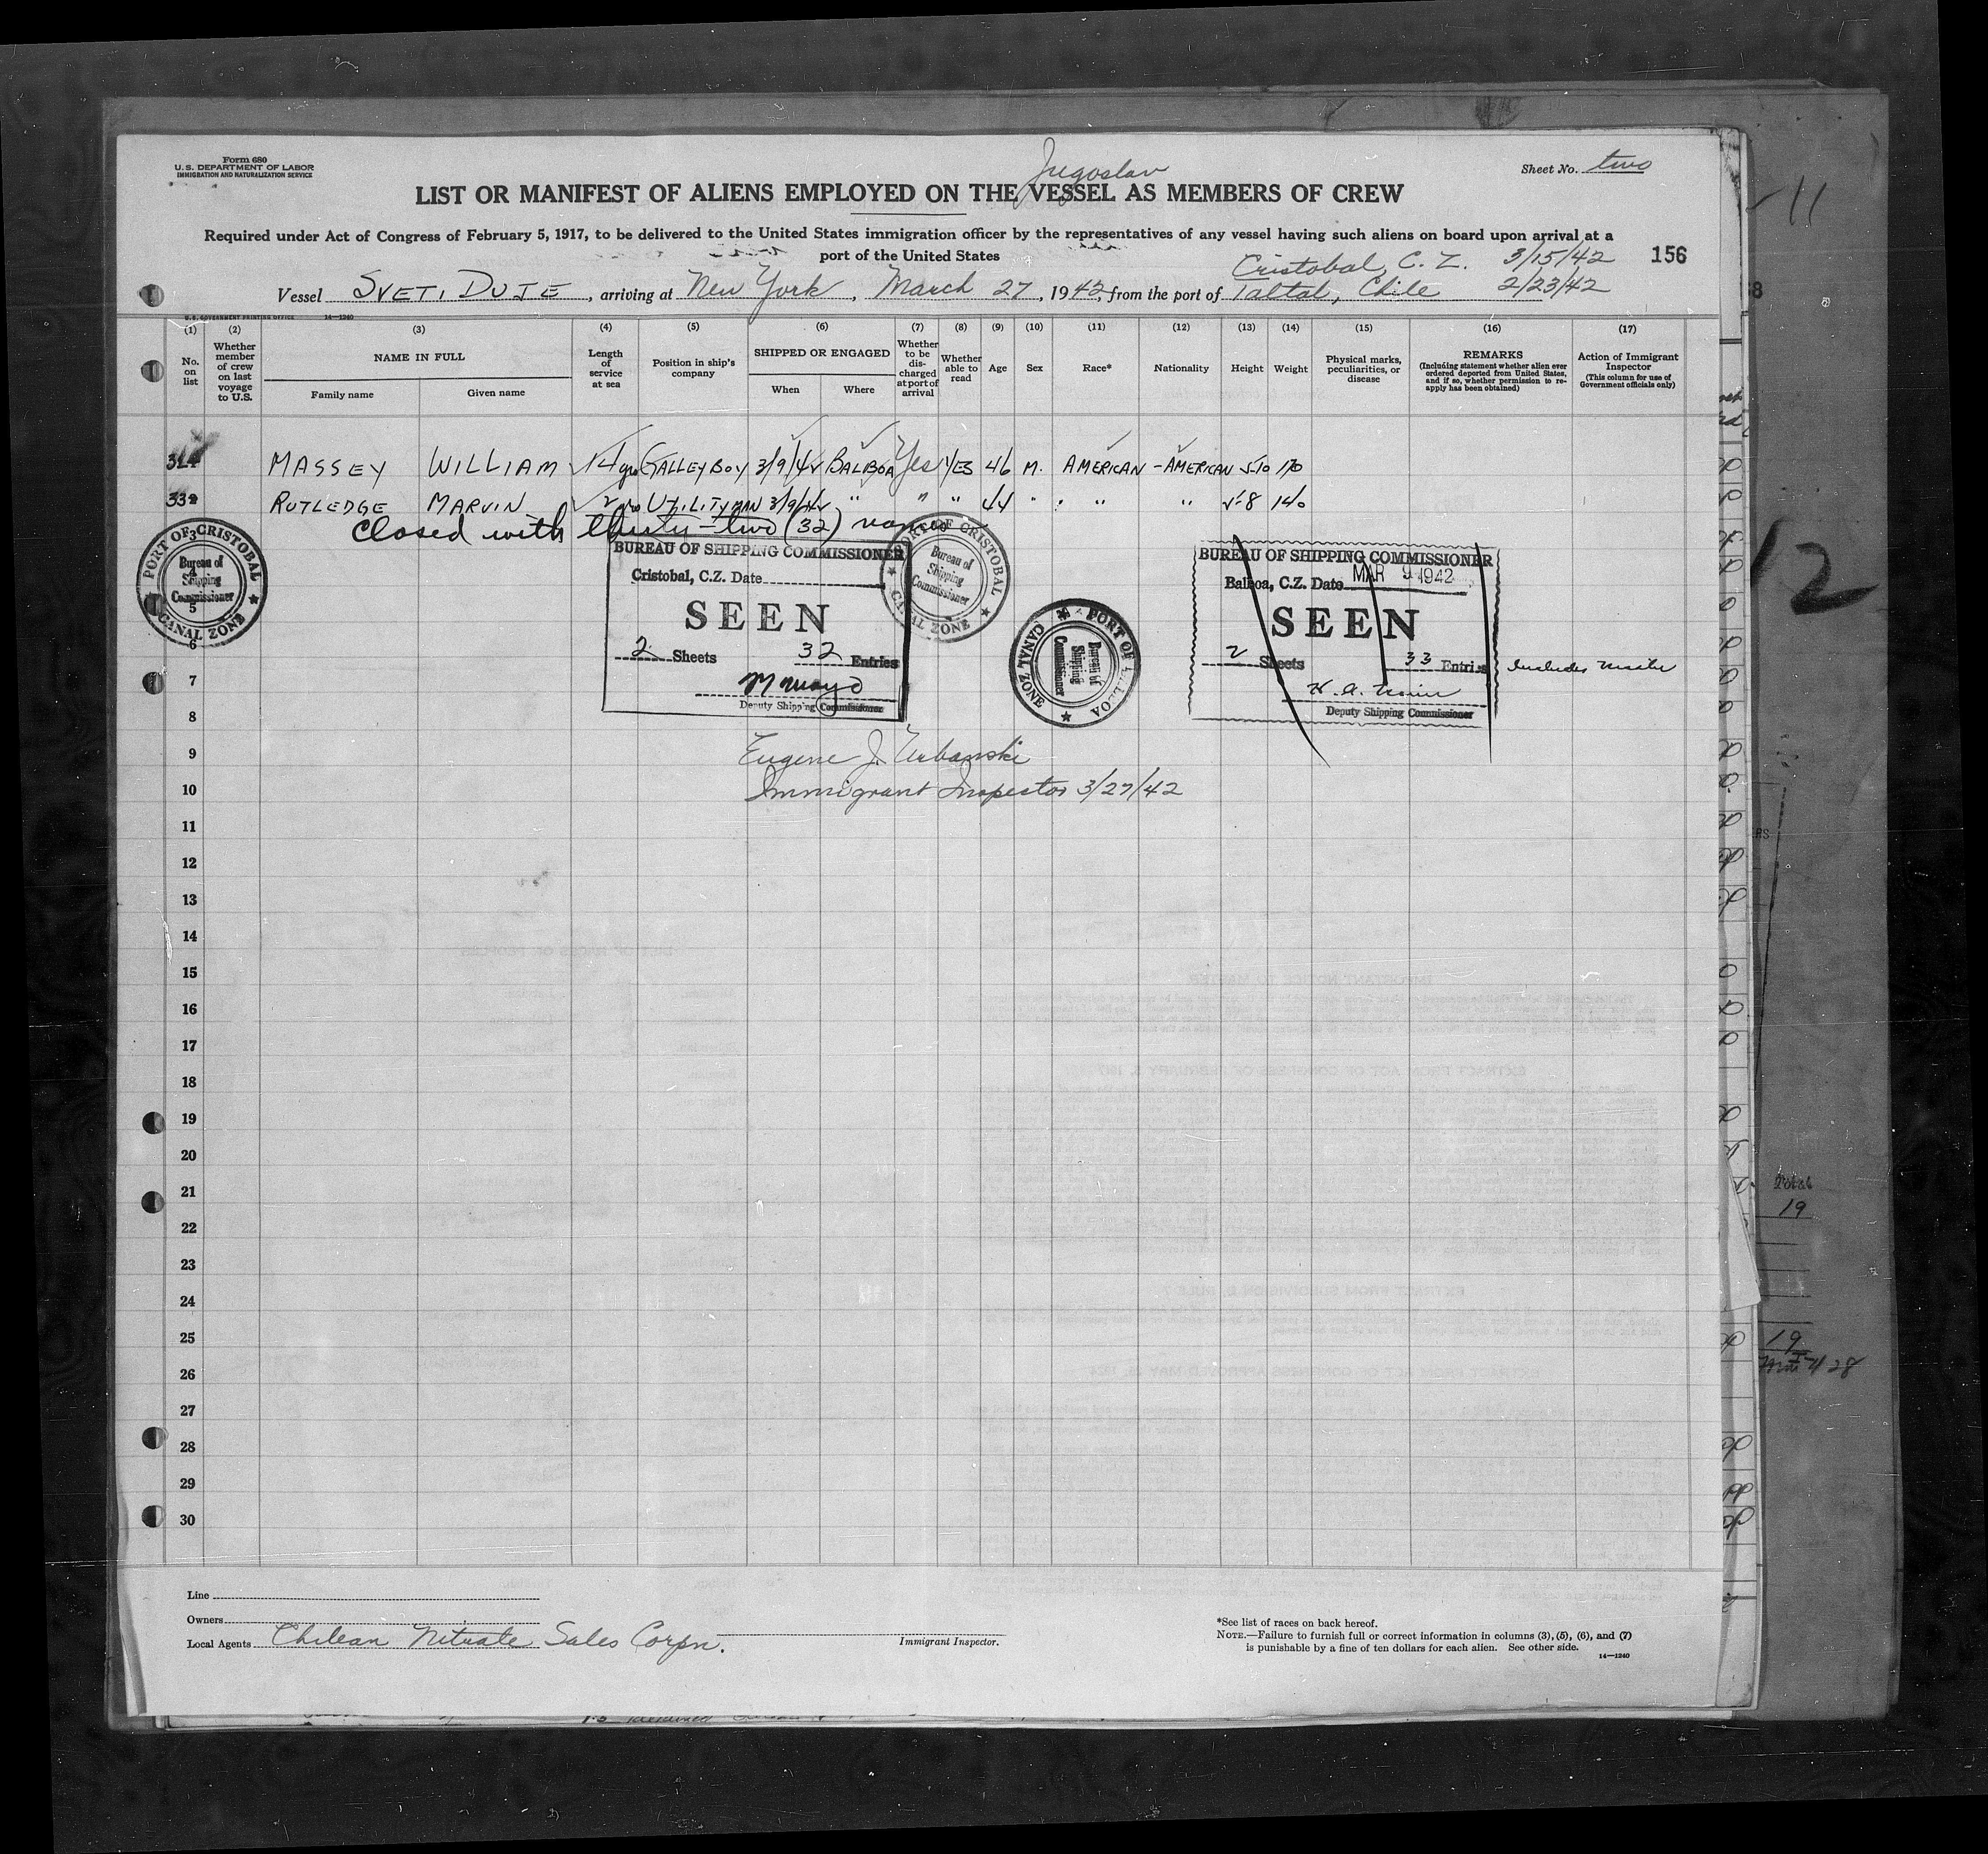 Form 680
U.S. DEPARTMENT OF LABOR
IMMIGRATION AND NATURALIZATION SERVICE
Jugoslav
Sheet No. two
LIST OR MANIFEST OF ALIENS EMPLOYED ON THE VESSEL AS MEMBERS OF CREW
Required under Act of Congress of February 5, 1917, to be delivered to the United States immigration officer by the representatives of any vessel having such aliens on board upon arrival at a
port of the United States
156
Cristobal, C. Z. 3/15/42
Vessel SVETI DUJE, arriving at New York, March 27, 1942, from the port of Taltal, Chile 2/23/42
U.S. GOVERNMENT PRINTING OFFICE 14—1240
(1) (2) (3) (4) (5) (6) (7) (8) (9) (10) (11) (12) (13) (14) (15) (16) (17)
No. on list
Whether member of crew on last voyage to U.S.
NAME IN FULL
Family name
Given name
Length of service at sea
Position in ship's company
SHIPPED OR ENGAGED
When
Where
Whether to be discharged at port of arrival
Whether able to read
Age
Sex
Race*
Nationality
Height
Weight
Physical marks, peculiarities, or disease
REMARKS
(Including statement whether alien ever ordered deported from United States, and if so, whether permission to reapply has been obtained)
Action of Immigrant Inspector
(This column for use of Government officials only)
MASSEY WILLIAM GALLEY BOY 3/9/42 BALBOA Yes YES 46 M. AMERICAN - AMERICAN 5-10 170
33 RUTLEDGE MARVIN 2 UTILITYMAN 3/9/42 " " " 44 " " " 5-8 140
Closed with thirty-two (32) names
PORT OF CRISTOBAL
Bureau of Shipping Commissioner
CANAL ZONE
BUREAU OF SHIPPING COMMISSIONER
Cristobal, C.Z. Date
SEEN
2 Sheets 32 Entries
Deputy Shipping Commissioner
PORT OF CRISTOBAL
Bureau of Shipping Commissioner
CANAL ZONE
PORT OF BALBOA
Bureau of Shipping Commissioner
CANAL ZONE
BUREAU OF SHIPPING COMMISSIONER
Balboa, C.Z. Date MAR 9 1942
SEEN
2 Sheets 33 Entries
Includes Master
Deputy Shipping Commissioner
3
4
5
6
7
8
9
Eugene J. Urbanski
10
Immigrant Inspector 3/27/42
11
12
13
14
15
16
17
18
19
20
21
22
23
24
25
26
27
28
29
30
Line
Owners
Local Agents Chilean Nitrate Sales Corpn.
Immigrant Inspector.
*See list of races on back hereof.
NOTE.—Failure to furnish full or correct information in columns (3), (5), (6), and (7)
is punishable by a fine of ten dollars for each alien. See other side.
14—1240
11
12
Total
19
19